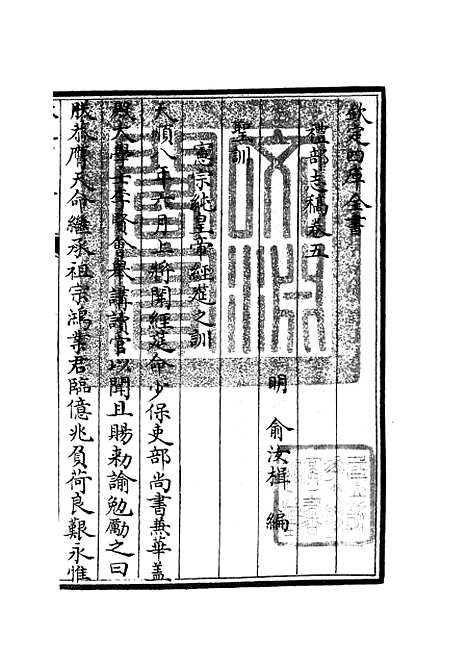 欽定四庫全書
禮部志稿卷五
明 俞汝楫 編
聖訓
憲宗純皇帝經筵之訓
天順八年六月上將開經筵命少保吏部尚書兼華蓋
殿大學士李賢會舉講讀官以聞且賜勅諭勉勵之曰
朕膺天命繼承祖宗鴻業君臨億兆負荷良艱永惟